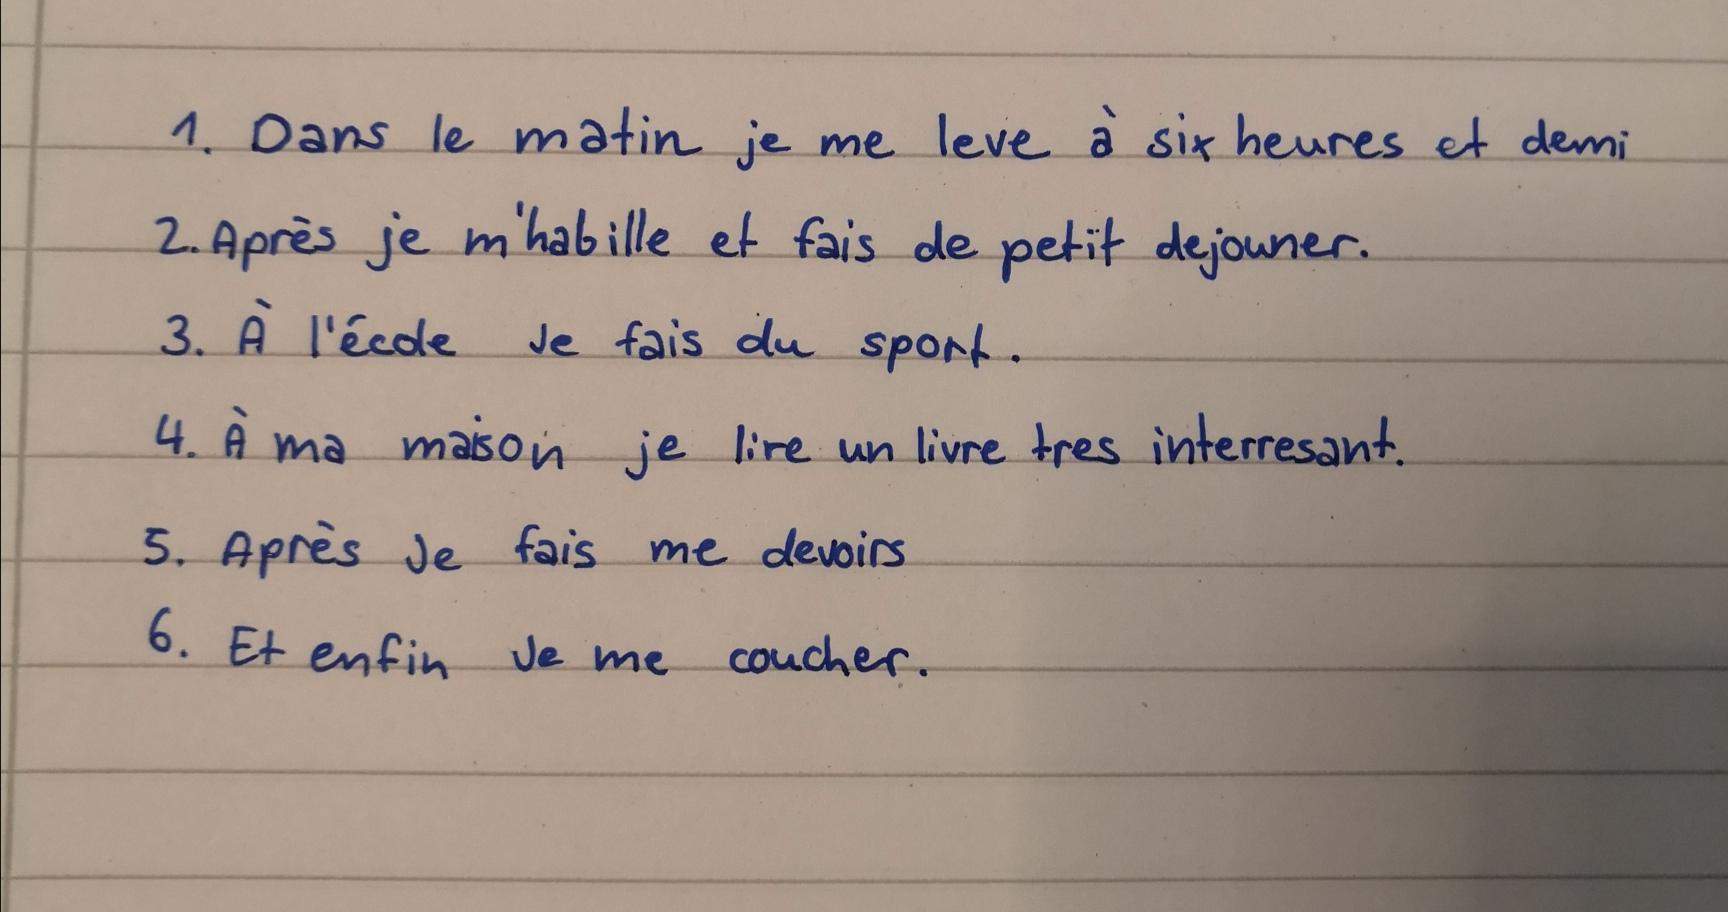 1. Dans le matin je me leve à six heures et demi
2. Après je m'habille et fais de petit dejouner.
3. À l'école Je fais du sport.
4. À ma maison je lire un livre tres interresant.
5. Après Je fais me devoirs
6. Et enfin Je me coucher.